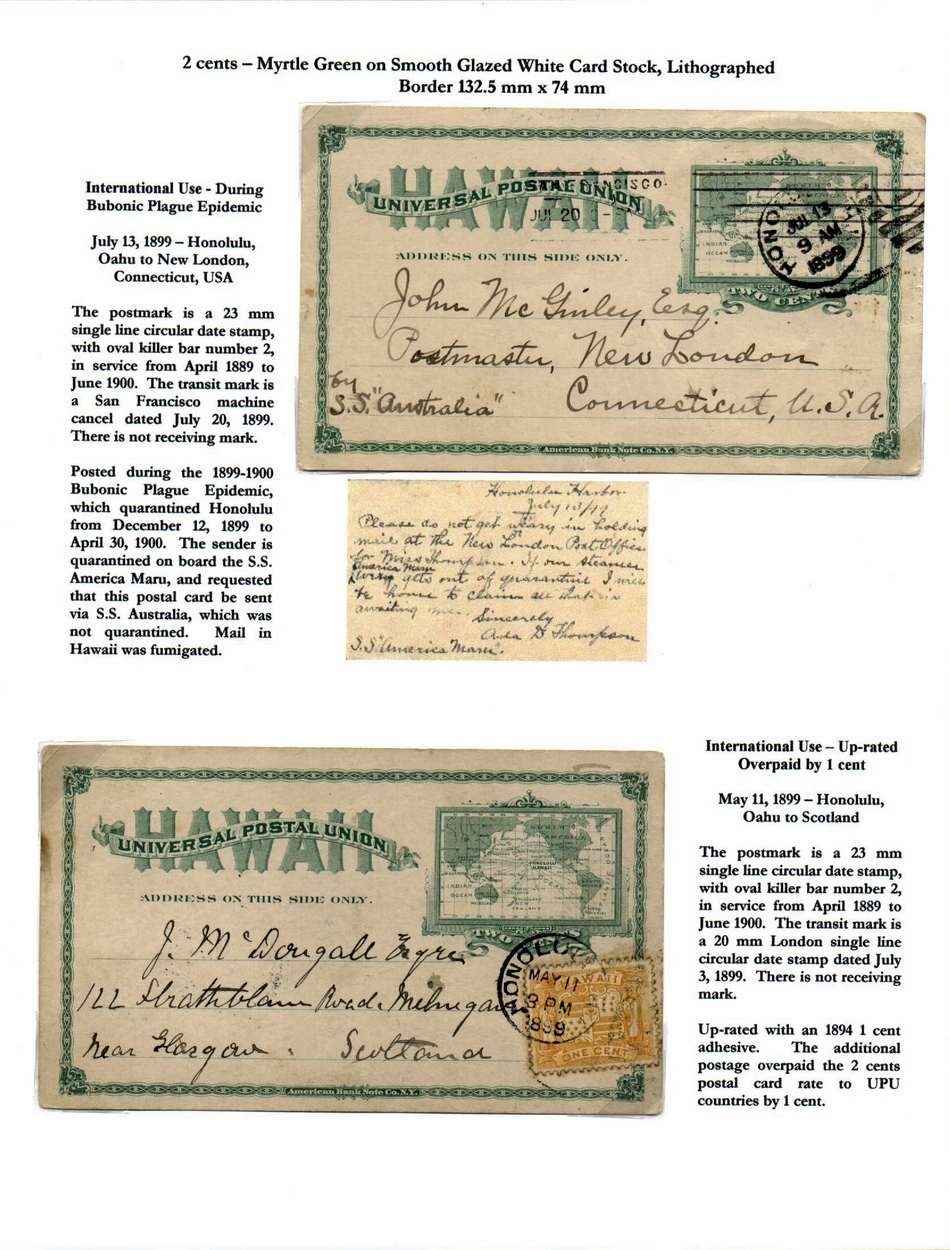 2 cents – Myrtle Green on Smooth Glazed White Card Stock, Lithographed
Border 132.5 mm x 74 mm
International Use - During
Bubonic Plague Epidemic
July 13, 1899 – Honolulu,
Oahu to New London,
Connecticut, USA
The postmark is a 23 mm
single line circular date stamp,
with oval killer bar number 2,
in service from April 1889 to
June 1900. The transit mark is
a San Francisco machine
cancel dated July 20, 1899.
There is not receiving mark.
Posted during the 1899-1900
Bubonic Plague Epidemic,
which quarantined Honolulu
from December 12, 1899 to
April 30, 1900. The sender is
quarantined on board the S.S.
America Maru, and requested
that this postal card be sent
via S.S. Australia, which was
not quarantined. Mail in
Hawaii was fumigated.
HAWAII
UNIVERSAL POSTAL UNION
JUL 20
ADDRESS ON THIS SIDE ONLY.
INDIAN
OCEAN
HONOLULU
JUL 13
9 AM
1899
TWO CENTS
John McGinley, Esq.
Postmaster, New London
by
S.S. "Australia"
Connecticut, U.S.A.
American Bank Note Co. N.Y.
Honolulu Harbor
July 13/99
Please do not get weary in holding
mail at the New London Post Office
for Miss Thompson. If our steamer
America Maru
gets out of quarantine I will
be home to claim all that is
awaiting me.
Sincerely
Ada D Thompson
S.S. "America Maru".
HAWAII
UNIVERSAL POSTAL UNION
ADDRESS ON THIS SIDE ONLY.
NORTH
AMERICA
INDIAN
OCEAN
TWO
J. McDougall Esqre
122 Strathblane Road, Milngavie
near Glasgow. Scotland
HONOLULU
MAY 11
3 PM
1899
HAWAII
ONE CENT
American Bank Note Co. N.Y.
International Use – Up-rated
Overpaid by 1 cent
May 11, 1899 – Honolulu,
Oahu to Scotland
The postmark is a 23 mm
single line circular date stamp,
with oval killer bar number 2,
in service from April 1889 to
June 1900. The transit mark is
a 20 mm London single line
circular date stamp dated July
3, 1899. There is not receiving
mark.
Up-rated with an 1894 1 cent
adhesive. The additional
postage overpaid the 2 cents
postal card rate to UPU
countries by 1 cent.